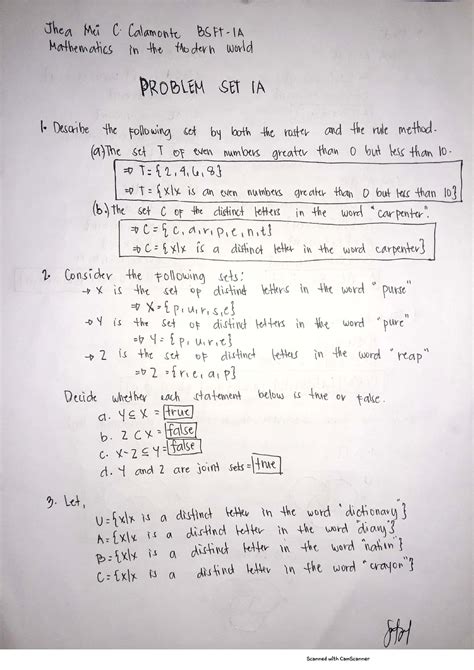 Jhea Mei C. Calamonte BSFT-1A
Mathematics in the Modern World
PROBLEM SET 1A
1. Describe the following set by both the roster and the rule method.
(a.) The set T of even numbers greater than 0 but less than 10.
⇒ T = {2,4,6,8}
⇒ T = {x|x is an even numbers greater than 0 but less than 10}
(b.) The set C of the distinct letters in the word "carpenter".
⇒ C = {c,a,r,p,e,n,t}
⇒ C = {x|x is a distinct letter in the word carpenter}
2. Consider the following sets:
→ X is the set of distinct letters in the word "purse"
⇒ X = {p,u,r,s,e}
→ Y is the set of distinct letters in the word "pure"
⇒ Y = {p,u,r,e}
→ Z is the set of distinct letters in the word "reap"
⇒ Z = {r,e,a,p}
Decide whether each statement below is true or false.
a. Y ⊆ X = true
b. Z ⊂ X = false
c. X-Z ⊆ Y = false
d. Y and Z are joint sets = true
3. Let,
U = {x|x is a distinct letter in the word "dictionary"}
A = {x|x is a distinct letter in the word "diary"}
B = {x|x is a distinct letter in the word "nation"}
C = {x|x is a distinct letter in the word "crayon"}
Scanned with CamScanner